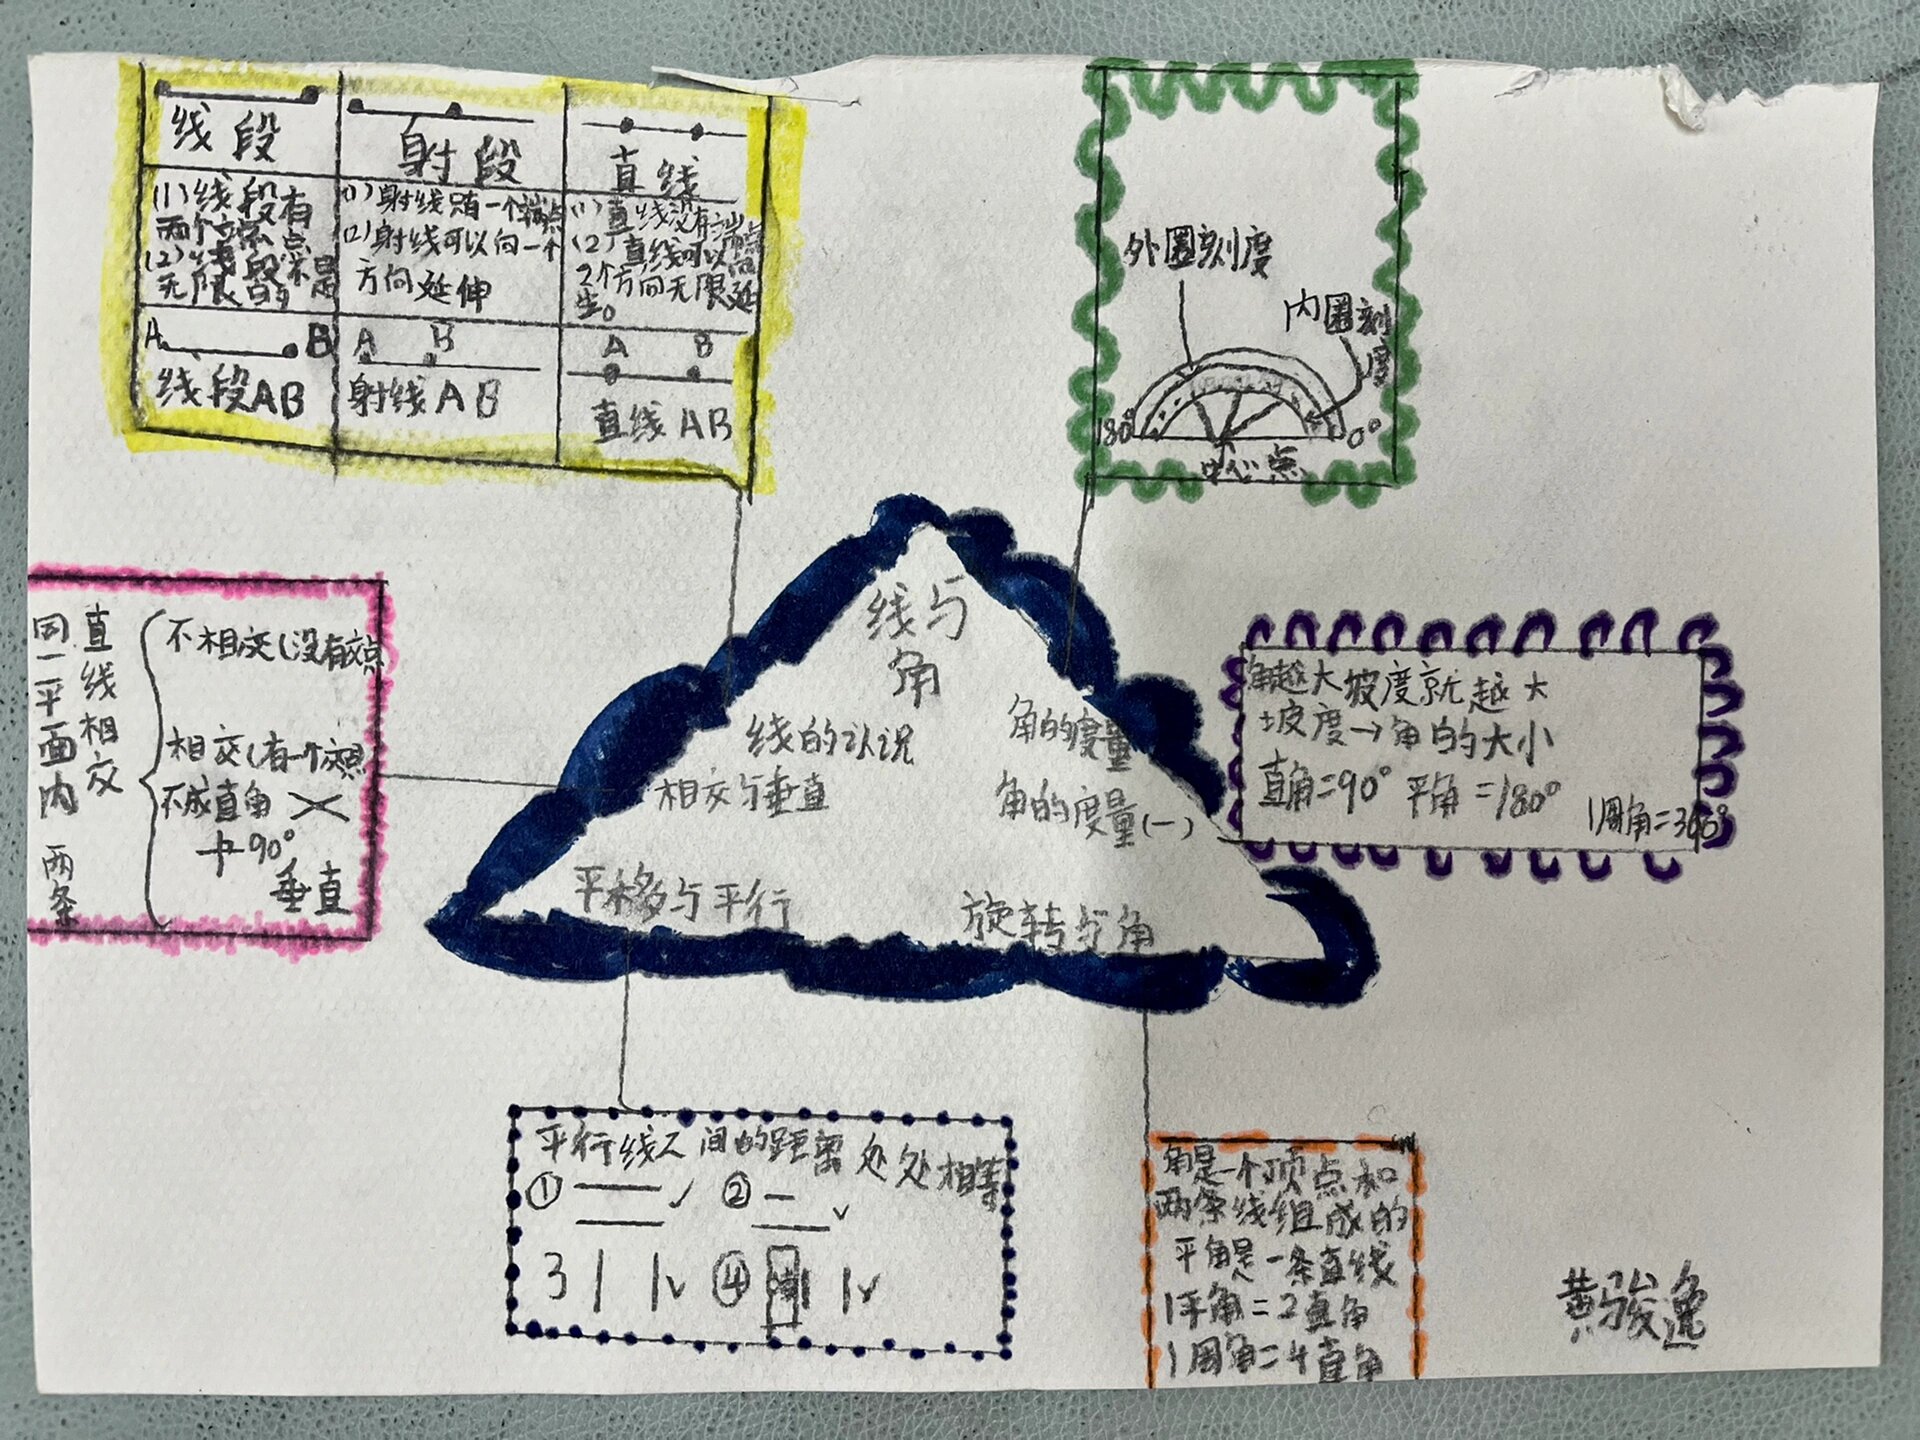 线段
射段
直线
(1)线段有
两个端点
(2)线段不是
无限的
(1)射线只有一个端点
(2)射线可以向一个
方向延伸
(1)直线没有端点
(2)直线可以向
2个方向无限延
生。
A B
线段AB
A B
射线AB
A B
直线AB
外圈刻度
内圈刻
度
180° 0°
中心点
同一平面内 两条
直线相交
不相交(没有交点
相交(有一个交点)
不成直角
90°
垂直
线与
角
线的认识
相交与垂直
平移与平行
角的度量
角的度量(一)
旋转与角
角越大坡度就越大
坡度→角的大小
直角=90° 平角=180°
1周角=360°
平行线之间的距离处处相等
① ✓ ② ✓
3 ✓ ④ ✓
角是一个顶点和
两条线组成的
平角是一条直线
1平角=2直角
1周角=4直角
黄骏逸